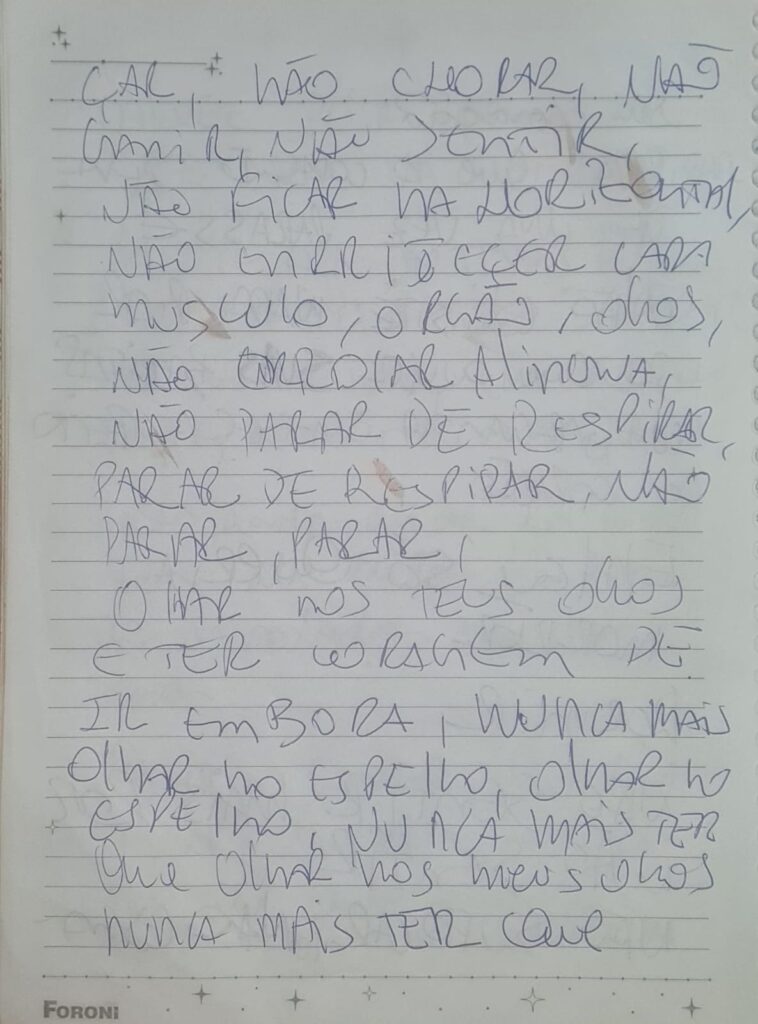 ÇAR, NÃO CHORAR, NÃO
GANIR, NÃO SENTIR,
NÃO FICAR NA HORIZONTAL,
NÃO ENRRIJECER CADA
MUSCULO, ORGÃO, OLHOS,
NÃO
NÃO PARAR DE RESPIRAR,
PARAR DE RESPIRAR, NÃO
PARAR, PARAR,
OLHAR NOS TEUS OLHOS
E TER CORAGEM DE
IR EMBORA, NUNCA MAIS
OLHAR NO ESPELHO, OLHAR NO
ESPELHO, NUNCA MAIS TER
QUE OLHAR NOS MEUS OLHOS
NUNCA MAIS TER QUE
FORONI